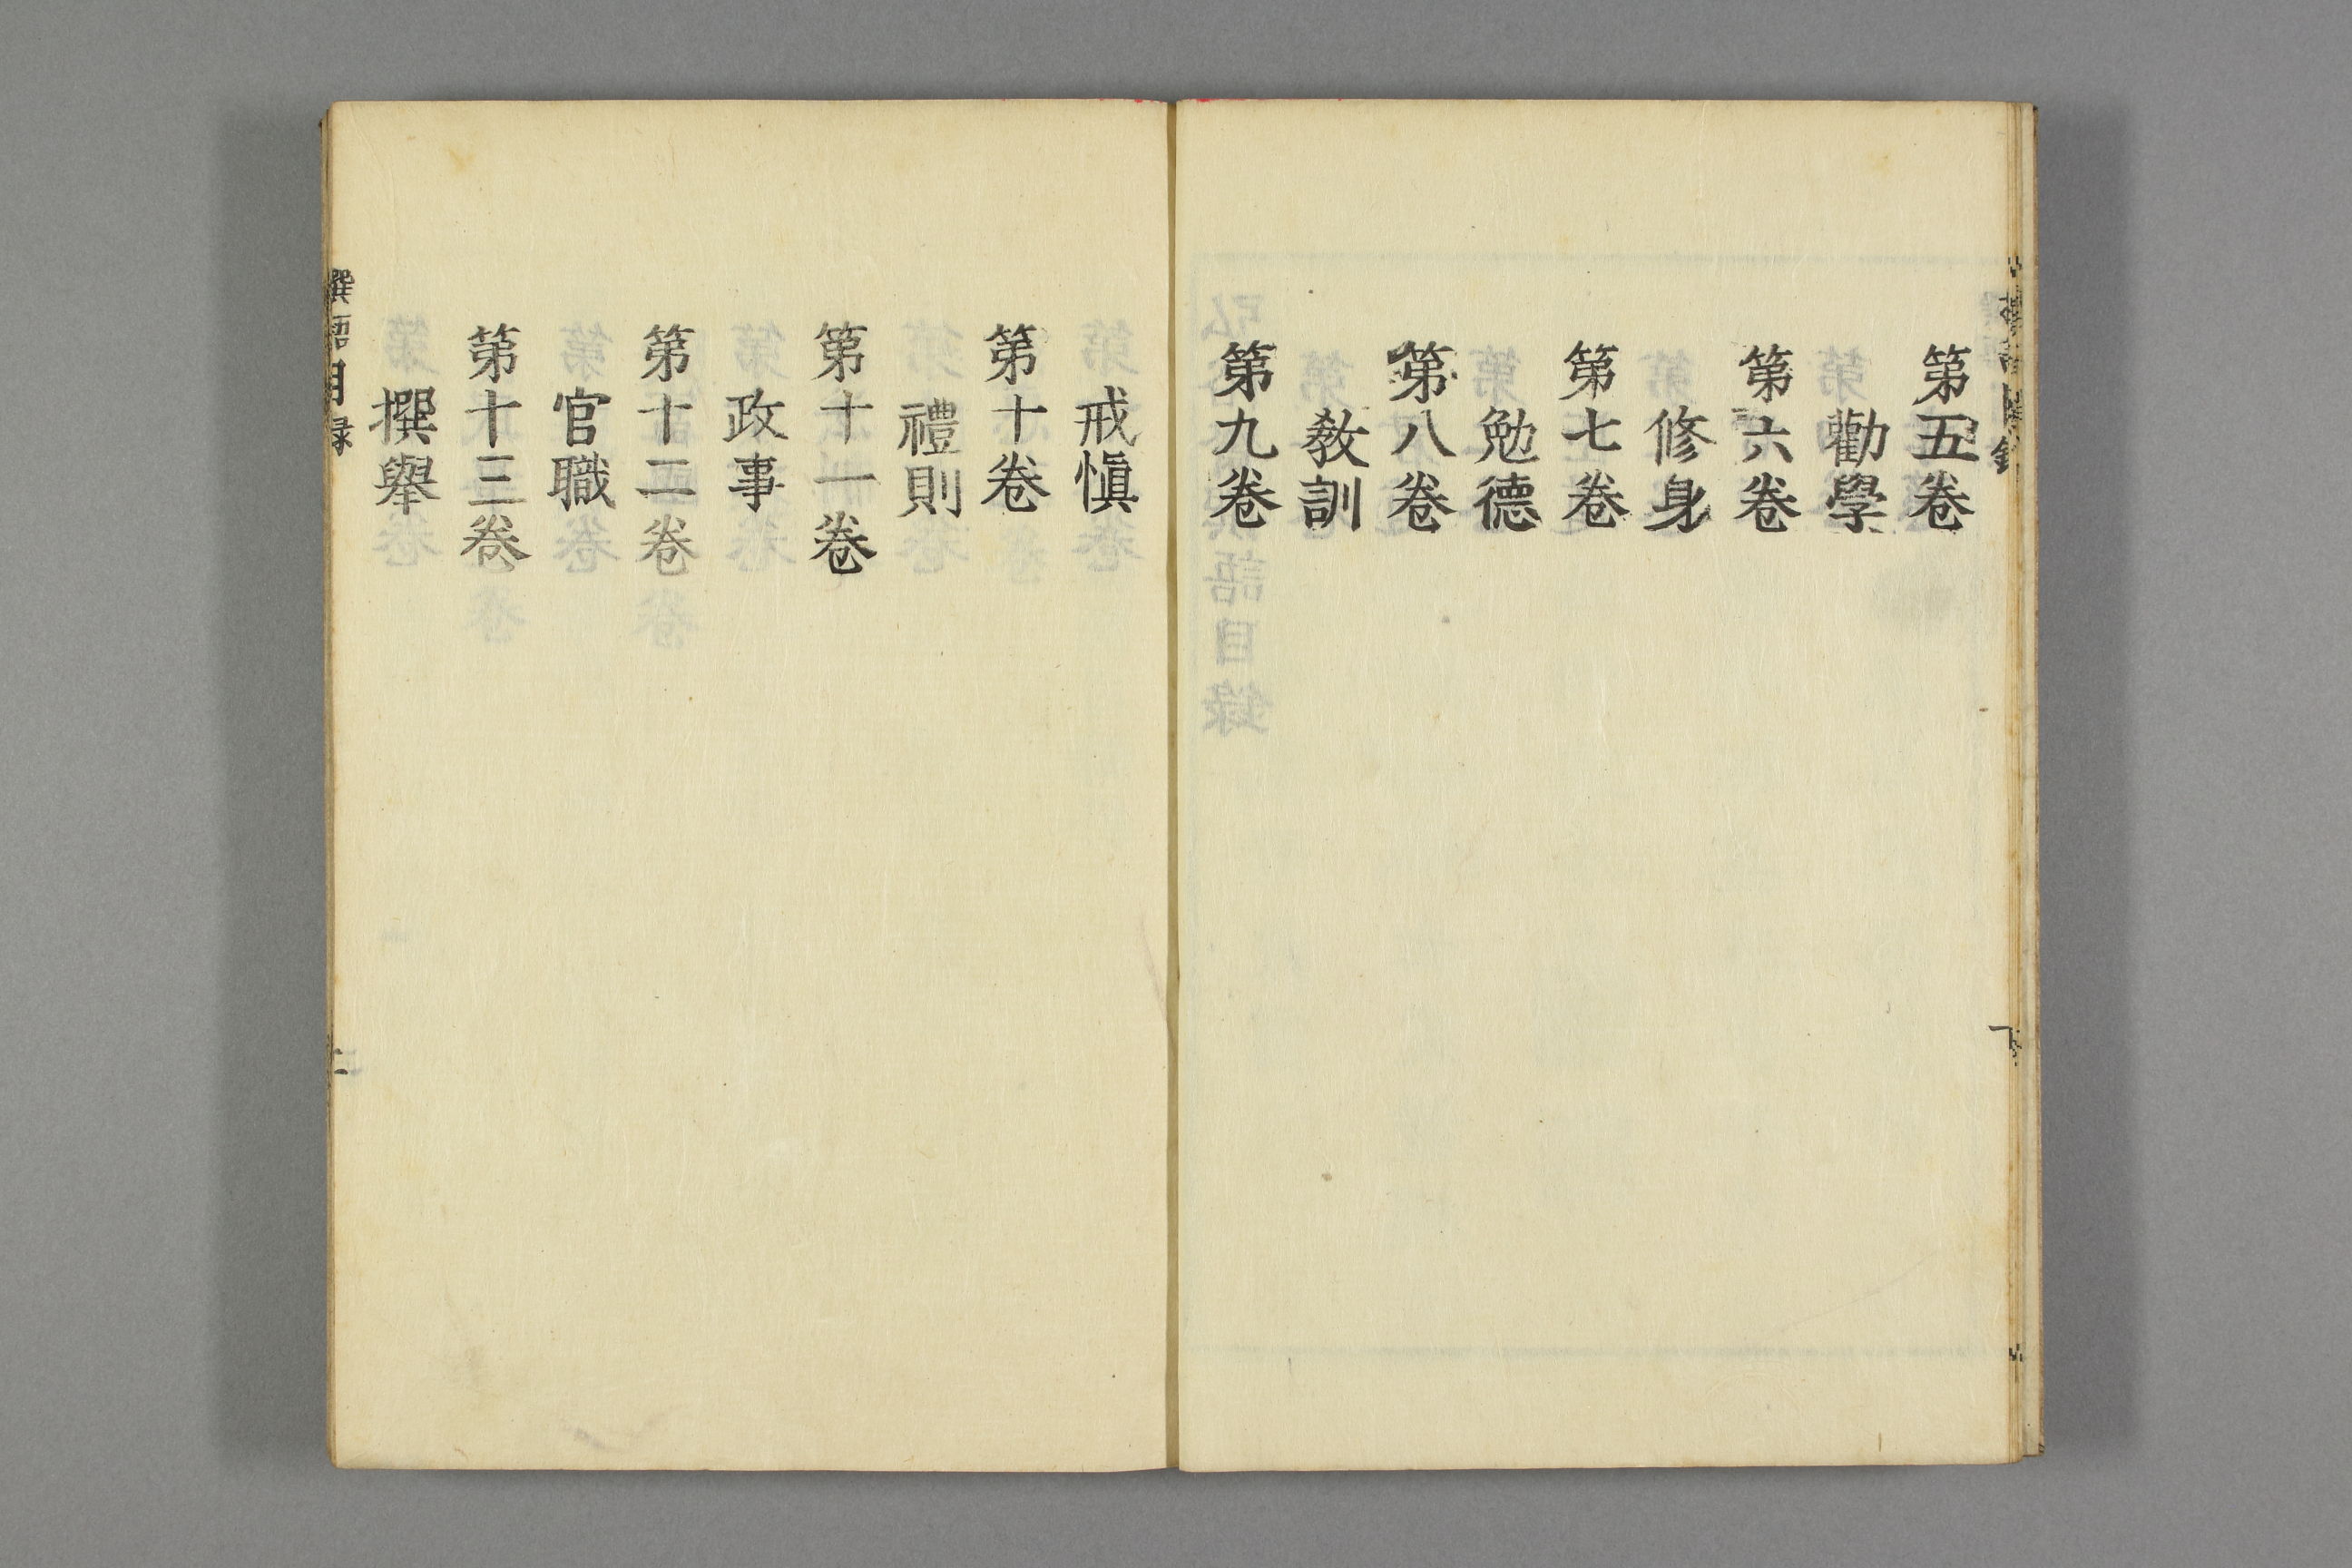 第五卷
勸學
第六卷
修身
第七卷
勉德
第八卷
敎訓
第九卷
戒愼
第十卷
禮則
第十一卷
政事
第十二卷
官職
第十三卷
撰舉
撰語目録
二